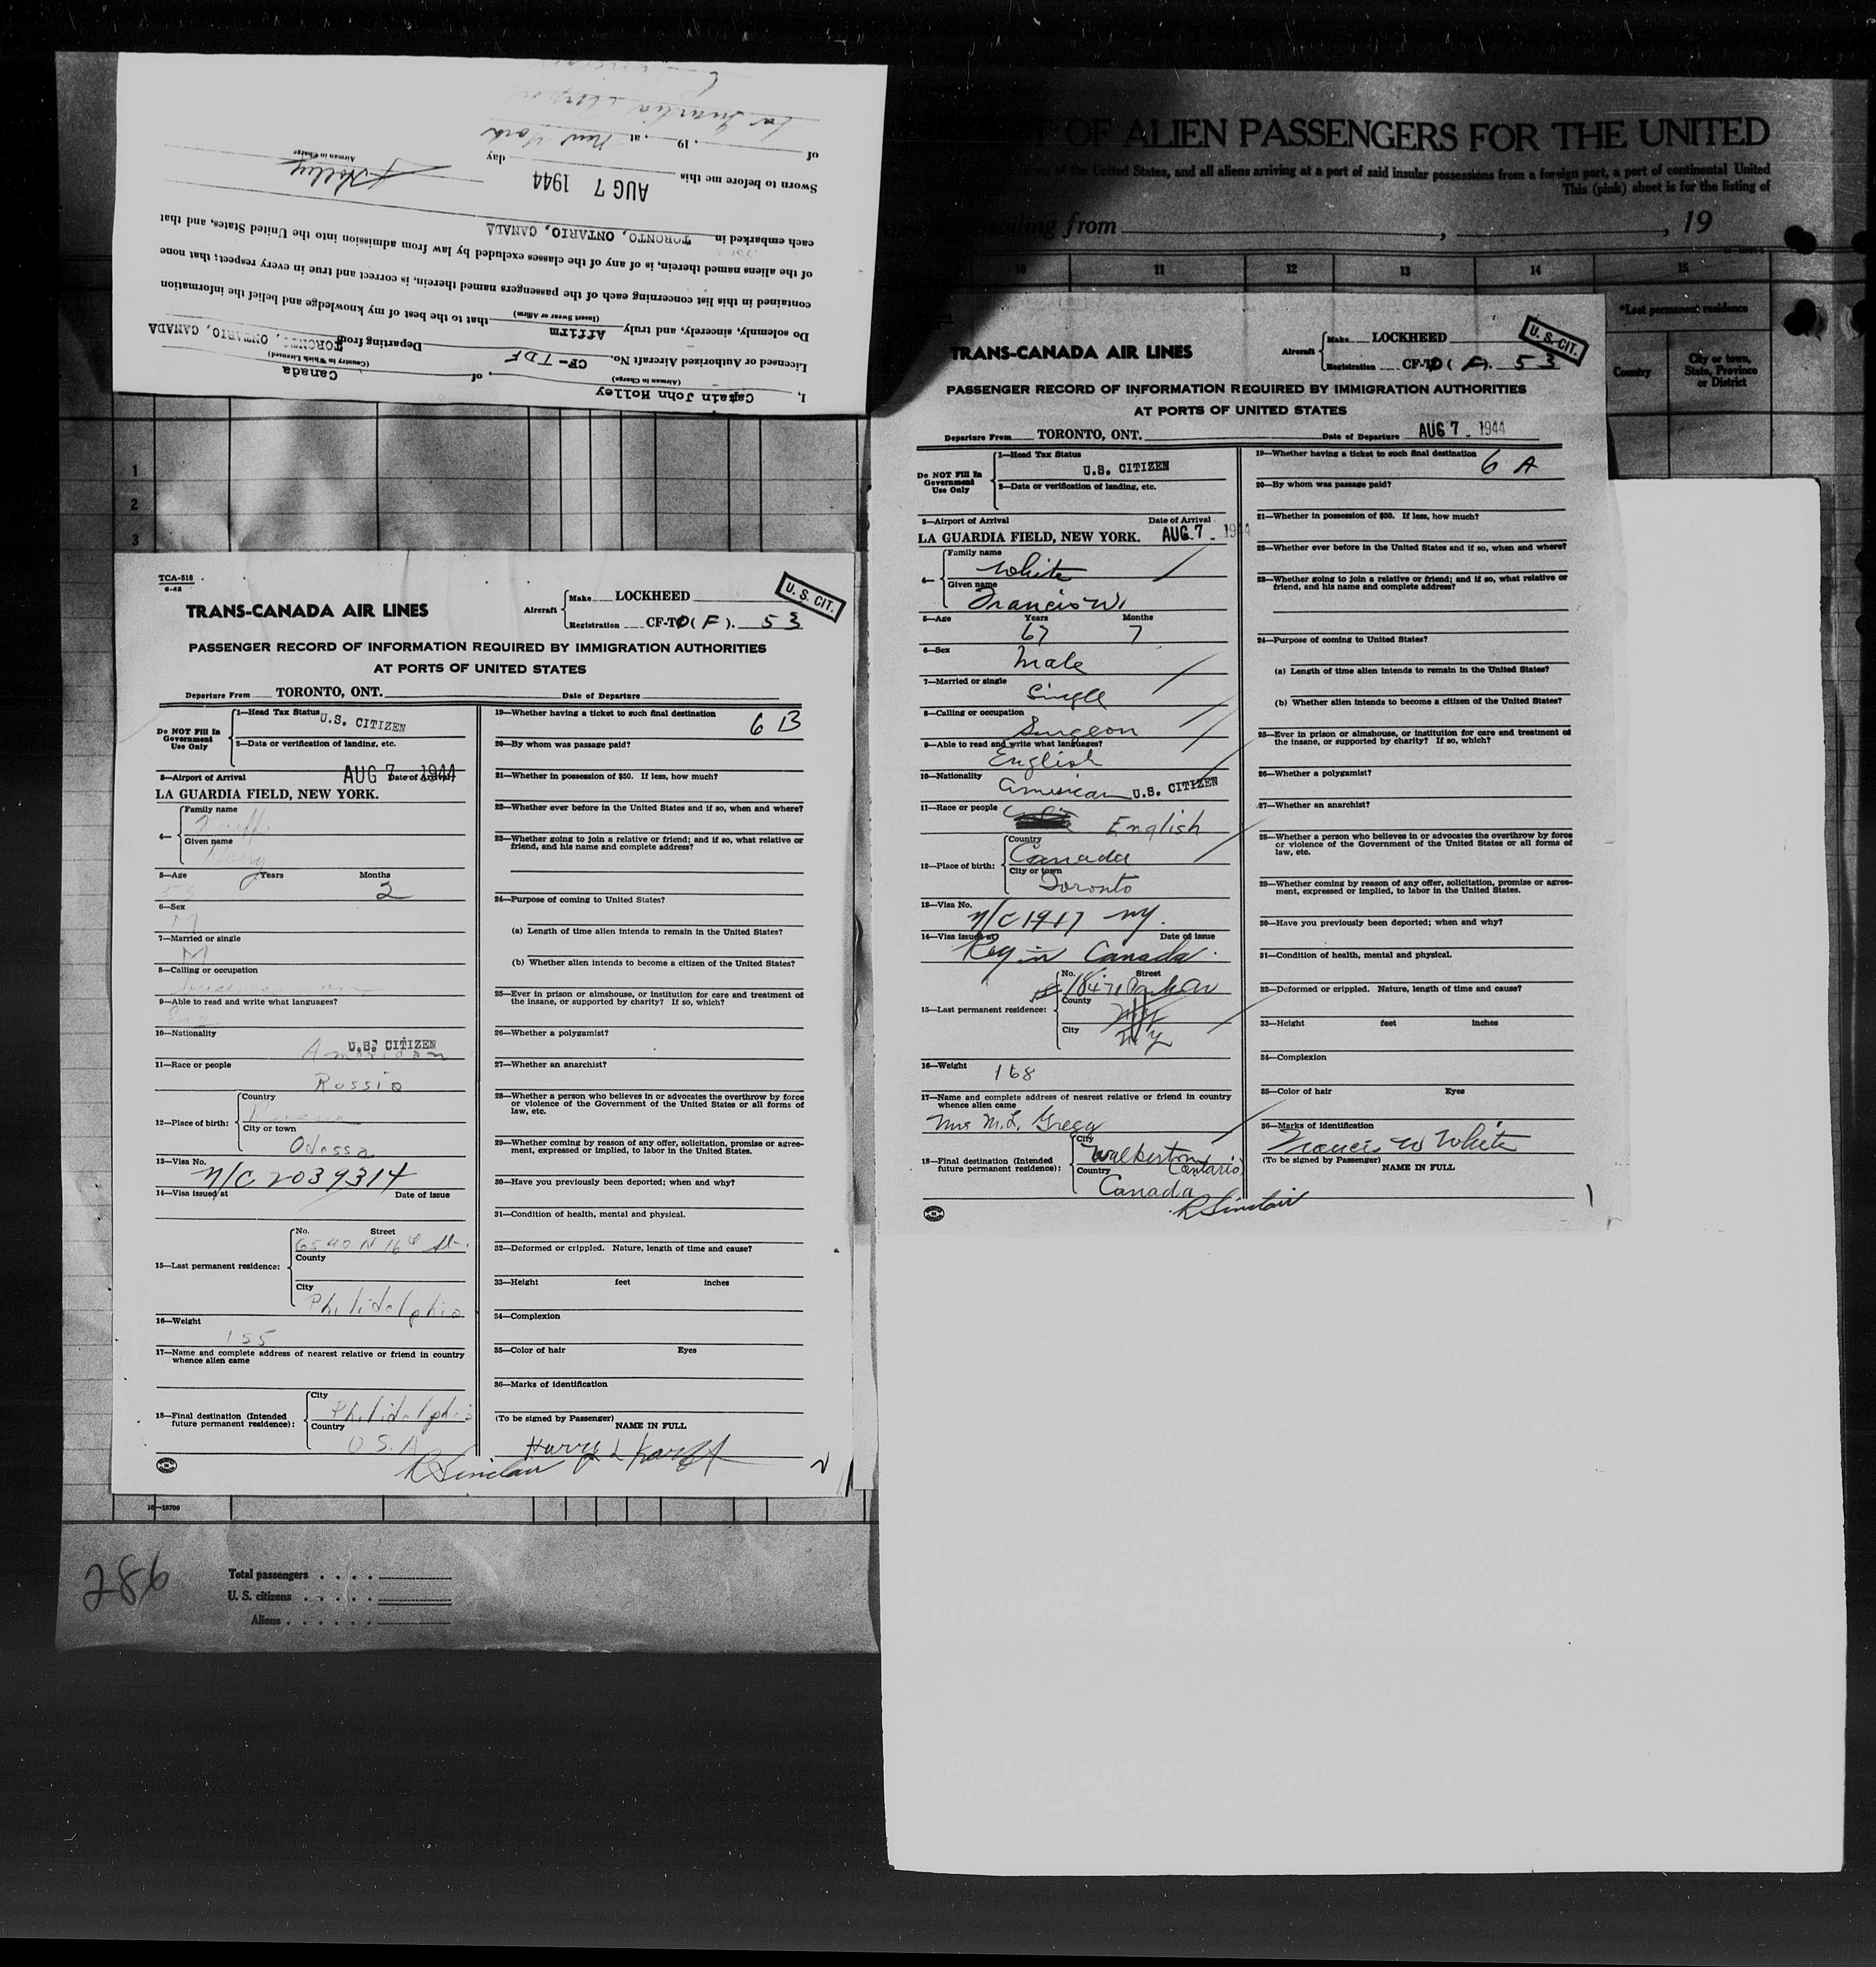 I, Captain John Holley of Canada
(Airman in Charge) (Country in Which Licensed)
Licensed or Authorized Aircraft No. CF-TDF Departing from TORONTO, ONTARIO, CANADA
Do solemnly, sincerely, and truly Affirm that to the best of my knowledge and belief the information
(Insert Swear or Affirm)
contained in this list concerning each of the passengers named therein, is correct and true in every respect; that none
of the aliens named therein, is of any of the classes excluded by law from admission into the United States, and that
each embarked in TORONTO, ONTARIO, CANADA
J Holley
Airman in Charge
Sworn to before me this AUG 7 1944 day
of , 19 , at New York
La Guardia Airport
OF ALIEN PASSENGERS FOR THE UNITED
of the United States, and all aliens arriving at a port of said insular possessions from a foreign port, a port of continental United
This (pink) sheet is for the listing of
sailing from , , 19
10 11 12 13 14 15
*Last permanent residence
Country
City or town, State, Province or District
1
2
3
TCA-518
6-42
TRANS-CANADA AIR LINES
Aircraft
Make LOCKHEED
Registration CF-TD( F ). 53
U. S. CIT.
PASSENGER RECORD OF INFORMATION REQUIRED BY IMMIGRATION AUTHORITIES
AT PORTS OF UNITED STATES
Departure From TORONTO, ONT. Date of Departure
Do NOT Fill In Government Use Only
1—Head Tax Status U.S. CITIZEN
2—Data or verification of landing, etc.
3—Airport of Arrival AUG 7 1944 Date of Arrival
LA GUARDIA FIELD, NEW YORK.
4—
Family name
Given name Harry
5—Age Years Months
53 2
6—Sex
M
7—Married or single
M
8—Calling or occupation
9—Able to read and write what languages?
Eng
10—Nationality
American U.S. CITIZEN
11—Race or people
Russia
12—Place of birth:
Country
Russia
City or town
Odessa
13—Visa No.
N/C 2039314
14—Visa issued at Date of issue
15—Last permanent residence:
No. Street
6540 N 16th St.
County
City
Philidelphia
16—Weight
155
17—Name and complete address of nearest relative or friend in country
whence alien came
18—Final destination (Intended
future permanent residence):
City
Philidelphia
Country
U.S.A
R Sinclair
19—Whether having a ticket to such final destination 6 B
20—By whom was passage paid?
21—Whether in possession of $50. If less, how much?
22—Whether ever before in the United States and if so, when and where?
23—Whether going to join a relative or friend; and if so, what relative or
friend, and his name and complete address?
24—Purpose of coming to United States?
(a) Length of time alien intends to remain in the United States?
(b) Whether alien intends to become a citizen of the United States?
25—Ever in prison or almshouse, or institution for care and treatment of
the insane, or supported by charity? If so, which?
26—Whether a polygamist?
27—Whether an anarchist?
28—Whether a person who believes in or advocates the overthrow by force
or violence of the Government of the United States or all forms of
law, etc.
29—Whether coming by reason of any offer, solicitation, promise or agree-
ment, expressed or implied, to labor in the United States.
30—Have you previously been deported; when and why?
31—Condition of health, mental and physical.
32—Deformed or crippled. Nature, length of time and cause?
33—Height feet inches
34—Complexion
35—Color of hair Eyes
36—Marks of identification
(To be signed by Passenger)
NAME IN FULL
Harry L
16—18700
286
Total passengers
U. S. citizens
Aliens
TRANS-CANADA AIR LINES
Aircraft
Make LOCKHEED
Registration CF-TD( F ). 53
U. S. CIT.
PASSENGER RECORD OF INFORMATION REQUIRED BY IMMIGRATION AUTHORITIES
AT PORTS OF UNITED STATES
Departure From TORONTO, ONT. Date of Departure AUG 7 - 1944
Do NOT Fill In Government Use Only
1—Head Tax Status
U.S. CITIZEN
2—Data or verification of landing, etc.
3—Airport of Arrival Date of Arrival
LA GUARDIA FIELD, NEW YORK. AUG 7 - 1944
4—
Family name
White
Given name
Francis W
5—Age Years Months
67 7
6—Sex
Male
7—Married or single
Single
8—Calling or occupation
Surgeon
9—Able to read and write what languages?
English
10—Nationality
American U.S. CITIZEN
11—Race or people
English
12—Place of birth:
Country
Canada
City or town
Toronto
13—Visa No.
N/C 1917 NY.
14—Visa issued at Date of issue
Reg in Canada
15—Last permanent residence:
No. Street
1847 Park Av
County
City
NY
16—Weight
168
17—Name and complete address of nearest relative or friend in country
whence alien came
Mrs M.L. Gregg
18—Final destination (Intended
future permanent residence):
City
Walkerton Ontario
Country
Canada
R Sinclair
19—Whether having a ticket to such final destination 6 A
20—By whom was passage paid?
21—Whether in possession of $50. If less, how much?
22—Whether ever before in the United States and if so, when and where?
23—Whether going to join a relative or friend; and if so, what relative or
friend, and his name and complete address?
24—Purpose of coming to United States?
(a) Length of time alien intends to remain in the United States?
(b) Whether alien intends to become a citizen of the United States?
25—Ever in prison or almshouse, or institution for care and treatment of
the insane, or supported by charity? If so, which?
26—Whether a polygamist?
27—Whether an anarchist?
28—Whether a person who believes in or advocates the overthrow by force
or violence of the Government of the United States or all forms of
law, etc.
29—Whether coming by reason of any offer, solicitation, promise or agree-
ment, expressed or implied, to labor in the United States.
30—Have you previously been deported; when and why?
31—Condition of health, mental and physical.
32—Deformed or crippled. Nature, length of time and cause?
33—Height feet inches
34—Complexion
35—Color of hair Eyes
36—Marks of identification
Francis W White
(To be signed by Passenger)
NAME IN FULL